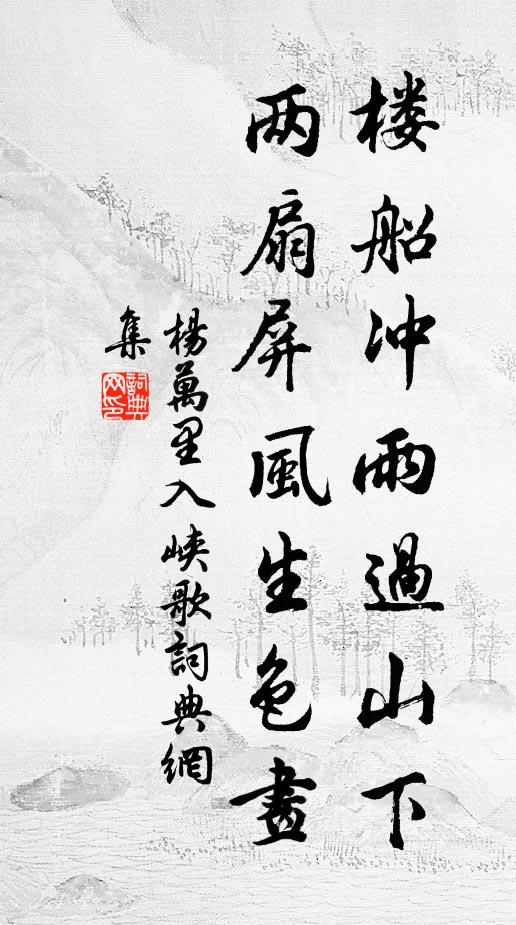 楼船冲雨過山下
两扇屏風生色畫
楊萬里入峽歌詞典網
集
詞典
网印